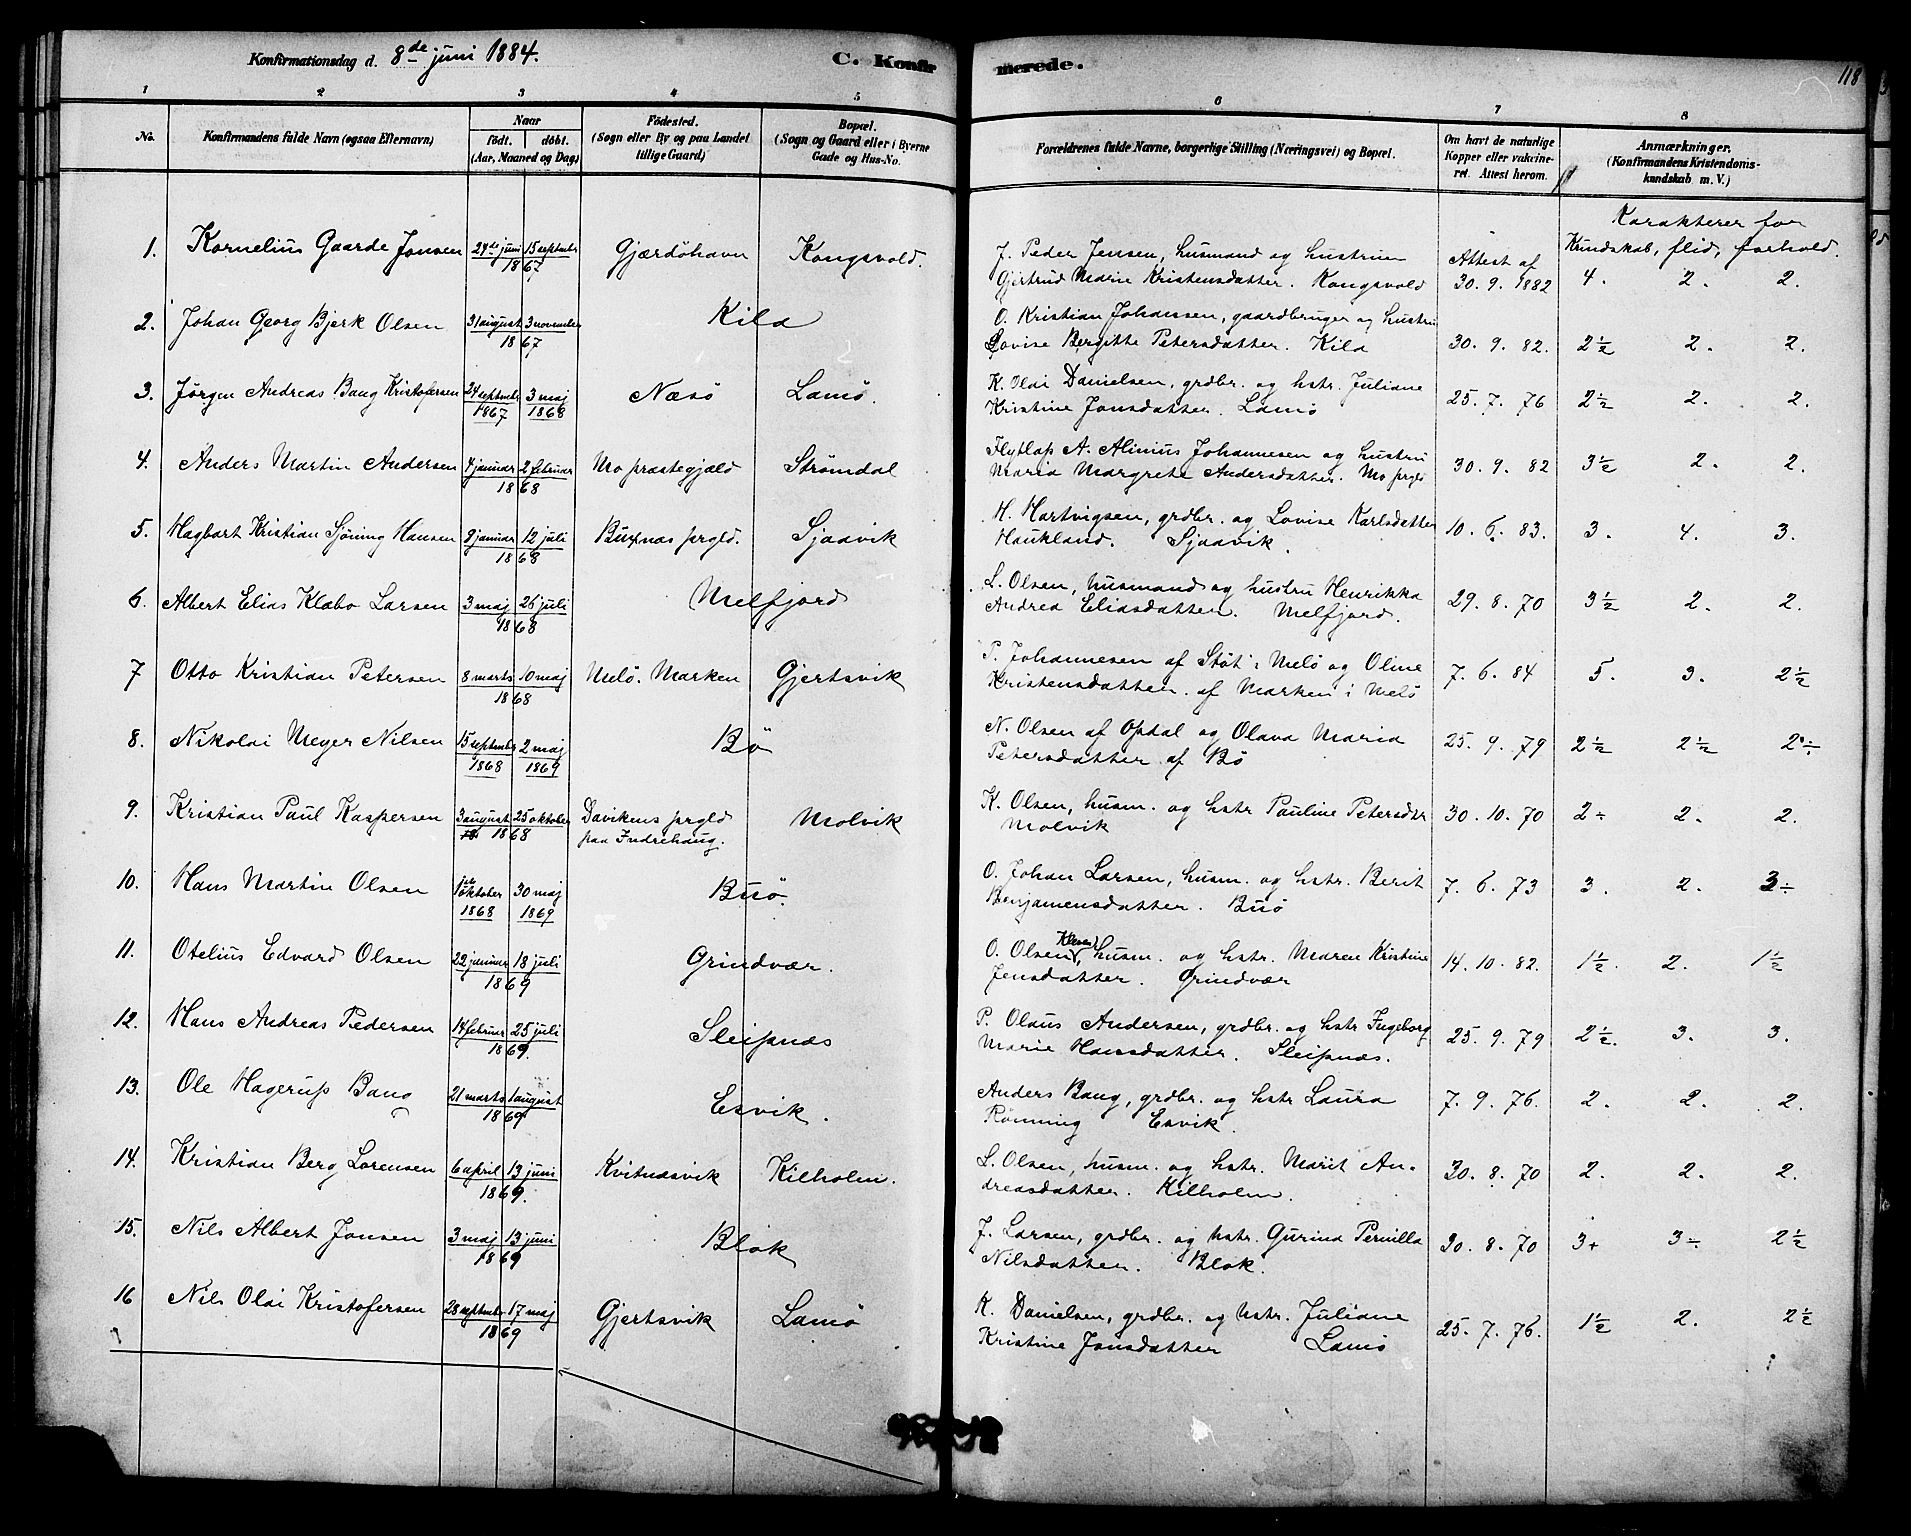 Konfirmationsdag d. 8de juni 1884.
C. Konfirmerede.
118
1 2 3 4 5 6 7 8
No.
Konfirmandens fulde Navn (ogsaa Efternavn)
Naar
födt. döbt.
(Aar, Maaned og Dag)
Födested.
(Sogn eller By og paa Landet
tillige Gaard)
Bopæl.
(Sogn og Gaard eller i Byerne
Gade og Hus-No.
Forældrenes fulde Navne, borgerlige Stilling (Næringsvei) og Bopæl.
Om havt de naturlige
Kopper eller vaccine-
ret. Attest herom.
Anmærkninger.
(Konfirmandens Kristendoms-
kundskab m. V.)
Karakterer for
Kundskab, flid, forhold.
1. Kornelius Gaarde Jensen 24de juni 15 september 1867 Gjærdöhavn Kongsvold.
J. Peder Jensen, husmand og hustrun
Gjertrud Marie Kristensdatter. Kongsvold
Attest af
30. 9. 1882 4. 2. 2.
2. Johan Georg Bjerk Olsen 31 august 3 november 1867 Kila
O. Kristian Johansen, gaardbruger og hustru
Lovise Bergitte Petersdatter. Kila 30. 9. 82. 2½ 2. 2.
3. Jørgen Andreas Bang Kristofersen 24 september 1867 3 maj 1868 Næsö Lamö.
K. Olai Danielsen, grdbr. og hstr. Juliane
Kristine Jonsdatter. Lamö 25. 7. 76 2½ 2. 2.
4. Anders Martin Andersen 4 januar 2 februar 1868 Mo præstegjæld Strömdal
Flytlap A. Alinius Johannesen og hustru
Maria Margrete Andersdatter. Mo prgld 30. 9. 82 3½ 2. 2.
5. Hagbart Kristian Sjöning Hansen 9 januar 12 juli 1868 Buxnæs prgld. Sjaavik
H. Hartvigsen, grdbr. og Lovise Karlsdatter
Haukland. Sjaavik. 10. 6. 83. 3. 4. 3.
6. Albert Elias Klæbo Larsen 3 maj 26 juli 1868 Melfjord
L. Olsen, husmand og hustru Henrikka
Andrea Eliasdatter. Melfjord. 29. 8. 70 3½ 2. 2.
7 Otto Kristian Petersen 8 marts 10 maj 1868 Melö. Marken Gjertsvik
P. Johannesen af Støt i Melö og Oline
Kristensdatter. af Marken i Melö 7. 6. 84 5. 3. 2½
8. Nikolai Meyer Nilsen 15 september 1868 2 maj 1869 Bö
N. Olsen af Opdal og Olava Maria
Petersdatter af Bö 25. 9. 79 2½ 2½ 2÷
9. Kristian Paul Kaspersen 3 august 25 oktober 1868 Davikens prgld
paa Indrehaug. Molvik
K. Olsen, husm. og hstr Pauline Petersdtr
Molvik 30. 10. 70 2÷ 2. 2.
10. Hans Martin Olsen 1ste oktober 1868 30 maj 1869 Buö.
O. Johan Larsen, husm. og hstr. Berit
Benjamensdatter. Buö 7. 6. 73 3. 2. 3÷
11. Otelius Edvard Olsen 22 januar 18 juli 1869 Grindvær.
O. Olsen, husm. og hstr. Maren Kristine
Jensdatter. Grindvær 14. 10. 82. 1½. 2. 1½
12. Hans Andreas Pedersen 14 februar 25 juli 1869. Sleipnæs
P. Olaus Andersen, grdbr. og hstr Ingeborg
Marie Hansdatter. Sleipnæs. 25. 9. 79 2½. 3. 3.
13. Ole Hagerup Bang 21 marts 1 august 1869 Esvik.
Anders Bang, grdbr. og hstr Laura
Rönning Esvik. 7. 9. 76. 2. 2. 2.
14. Kristian Berg Lorensen 6 april 13 juni 1869. Kvitnæsvik Kilholm.
L. Olsen, husm. og hstr. Marit An-
dreasdatter. Kilholm. 30. 8. 70 2. 2. 2.
15. Nils Albert Jonsen 3 maj 13 juni 1869 Blok
J. Larsen, grdbr. og hstr. Gurina Pernilla
Nilsdatter. Blok. 30. 8. 70 3+ 3÷ 2½
16 Nils Olai Kristofersen 28 september 17 maj 1869 Gjertsvik Lamö
K. Danielsen, grdbr. og hstr. Juliane
Kristine Jonsdatter Lamö 25. 7. 76. 1½ 2. 2½